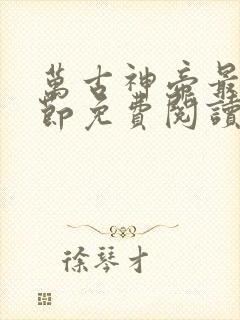 萬古神帝最
節免費閱讀
徐琴才